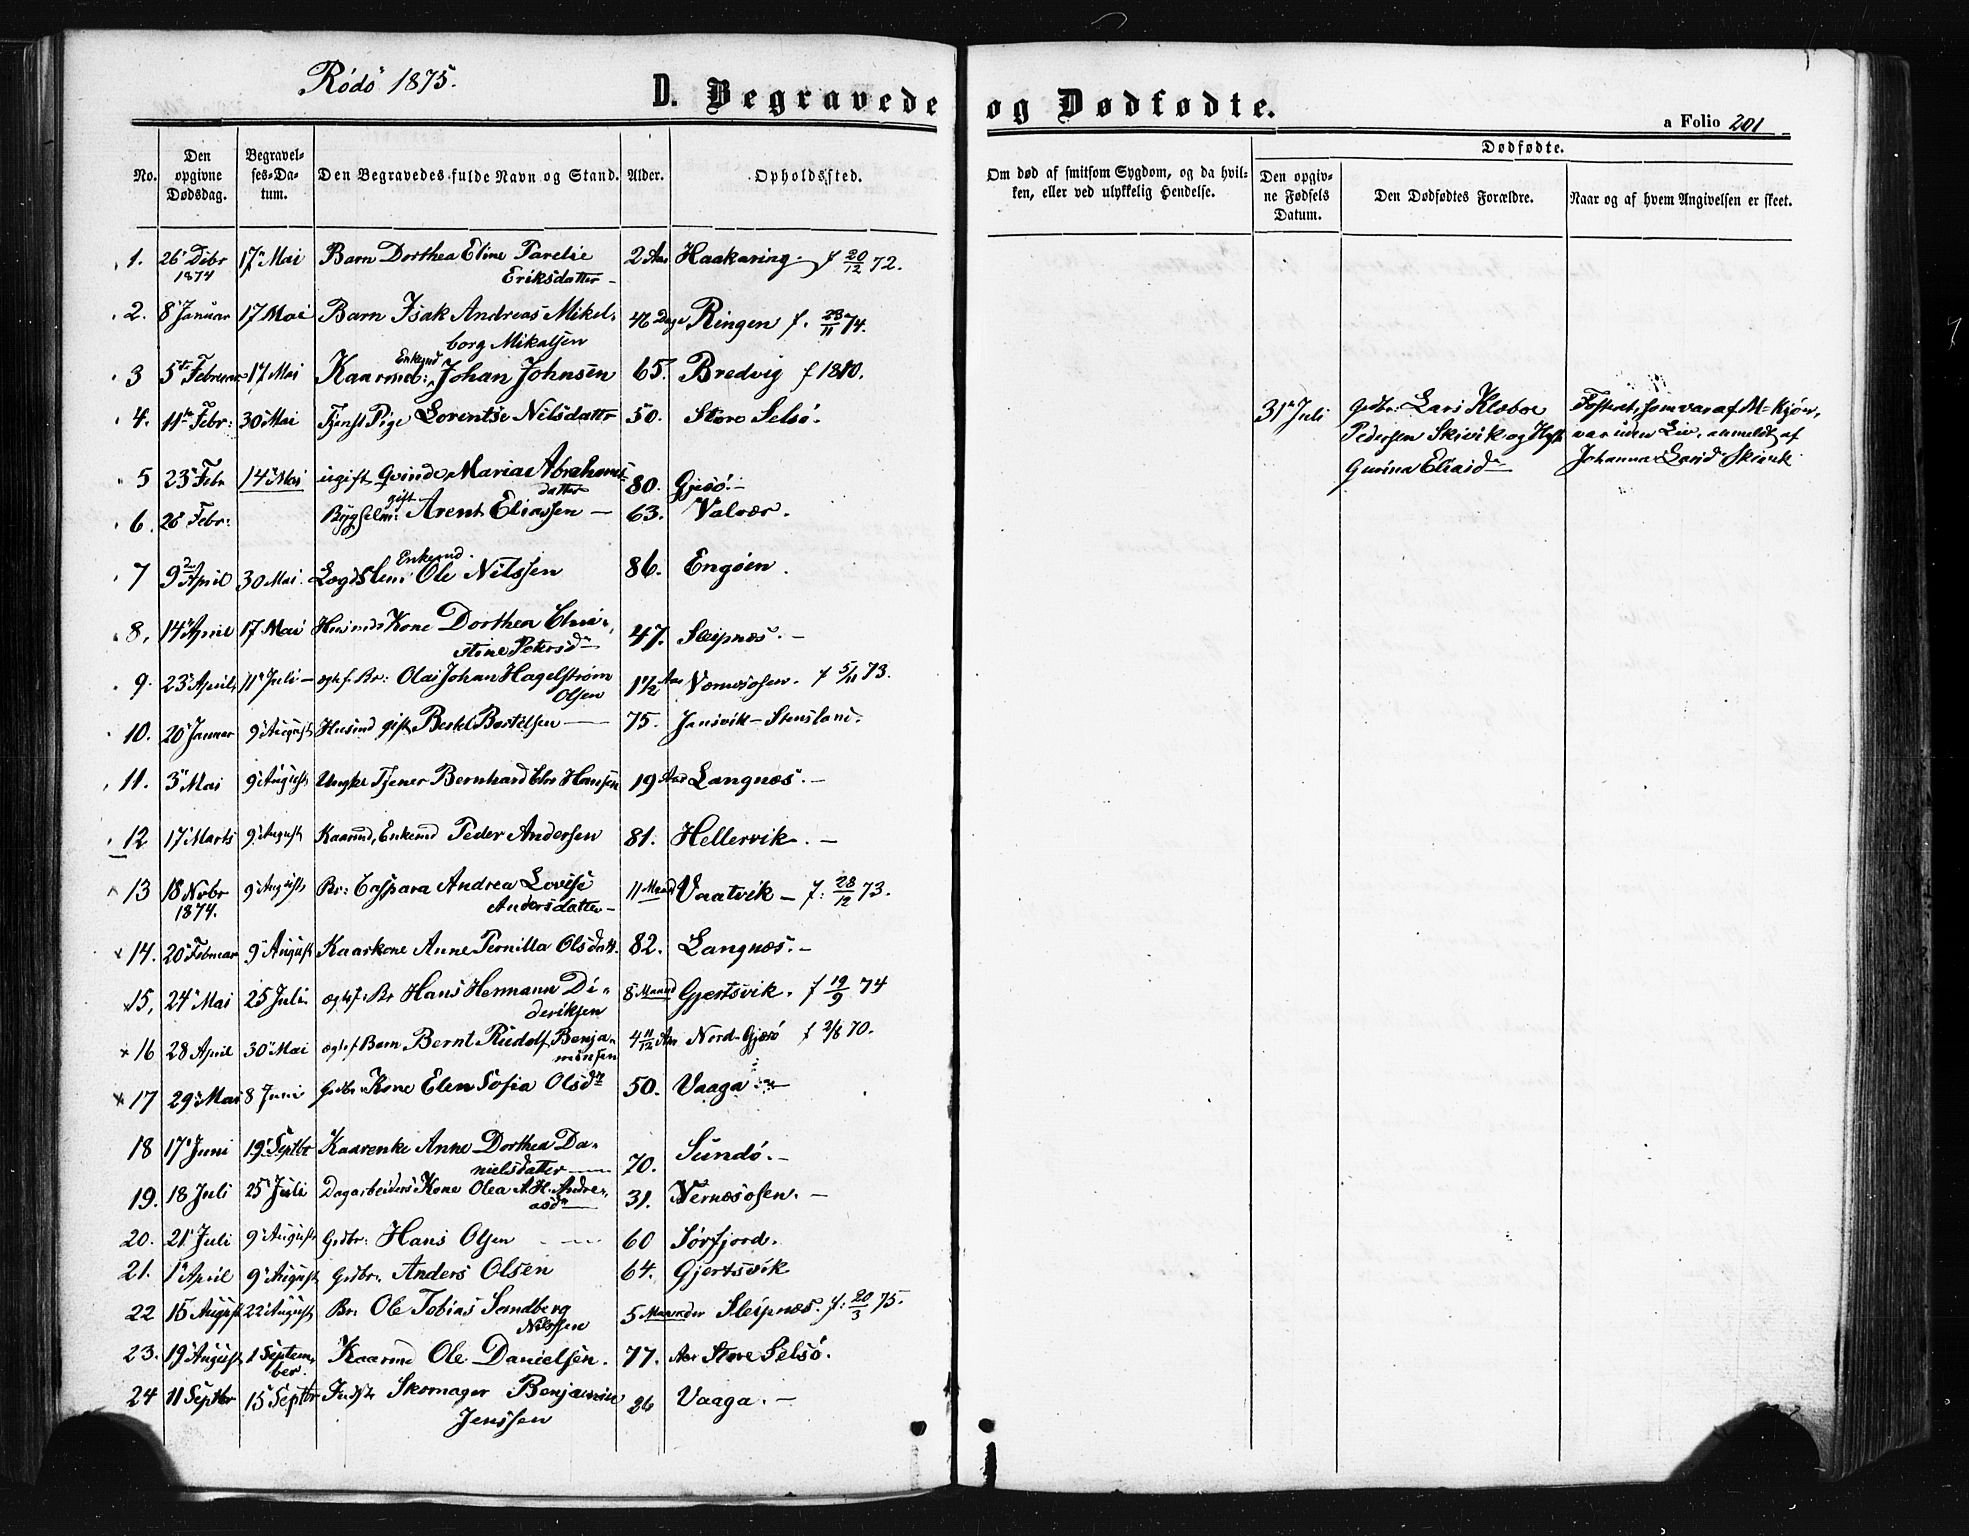 Rödö 1875.
D. Begravede og Dødfødte.
a Folio 201
No. Den opgivne Dødsdag. Begravelses-Datum. Den Begravedes fulde Navn og Stand. Alder. Opholdssted. Om død af smitsom Sygdom, og da hvilken, eller ved ulykkelig Hendelse. Dødfødte. Den opgivne Fødsels Datum. Den Dødfødtes Forældre. Naar og af hvem Angivelsen er skeet.
1. 26 Debr 17 Mai Barn Dorthea Eline Parelie 2 Aar Haakaring. f 20/12 72.
1874 Eriksdatter
2. 8 Januar 17 Mai Barn Isak Andreas Mikel- 46 Dage Ringen f. 23/11 74.
borg Mikalsen
Enkemd
3 5te Februar 17 Mai Kaarmd: Johan Johnsen 65. Bredvig f 1810.
4. 11te Febr: 30 Mai Tjenst Pige Lorentse Nilsdattr 50. Store Selsö.
31te Juli Grdbr: Lars Klæboe Fosteret, som var af M-Kjøn,
Pedersen Skivik og Hust var uden Liv, anmeldt af
Gurina Eliasd Johanna Larsd Skivik
5 23 Febr 14 Mai ugift Qvinde Maria Abrahams- 80. Gjesö.
datter
gift
6. 26 Febr: Bygselm: Arent Eliassen 63. Valvær.
Enkemd.
7 9 April 30 Mai Lægdslem Ole Nilssen 86. Engöen.
8. 14 April 17 Mai Husmds Kone Dorthea Chri- 47. Sleipnæs.
stine Petersd
9. 23 April 11 Juli ægtef. Br: Olai Johan Hagelström 1 1/2 Aar Værnesosen. f 5/11 73.
Olsen
10. 20 Januar 9 August Husmd gift Bertel Bertelsen 75. Jansvik-Stensland.
11. 3 Mai 9 August Ungke Tjener Bernhard Chr Hansen 19 Aar Langnæs.
12 17 Marts 9 August Kaarmd, Enkemd Peder Andersen 81. Hellervik.
13 18 Novbr 9 August Br: Caspara Andrea Lovise 11 Maand Vaatvik f: 28/12 73.
1874. Andersdatter
14. 20 Februar 9 August Kaarkone Anne Pernilla Olsdatt. 82. Langnæs.
15, 24 Mai 25 Juli ægtef. Br Hans Hermann Di- 8 Maand Gjertsvik. f 19/9 74
deriksen
16 28 April 30 Mai ægtef Barn Bernt Rudolf Benja- 4 11/12 Aar Nord-Gjesö f 2/6 70.
minsen
17 29 Mai 8 Juni Grdbr: Kone Elen Sofia Olsdtr 50. Vaaga.
18 17 Juni 19 Septbr Kaarenke Anne Dorthea Da- 70. Sundö.
nielsdatter
19. 18 Juli 25 Juli Dagarbeiders Kone Olea A. H. Andre- 31. Vernæsosen.
asdtr
20. 21 Juli 9 August Grdbr: Hans Olsen 60 Sörfjord.
21. 1 April 9 August Grdbr. Anders Olsen 64. Gjertsvik
22 15 August 22 August Br. Ole Tobias Sandberg 5 Maaneder Sleipnæs. f: 20/3 75.
Nilssen
23. 19 August 1 Septem- Kaarmd Ole Danielsen. 77. Aar Store Selsö.
ber.
24 11 Septbr 15 Septbr Skomager Benjamin 26 Vaaga.
Jenssen